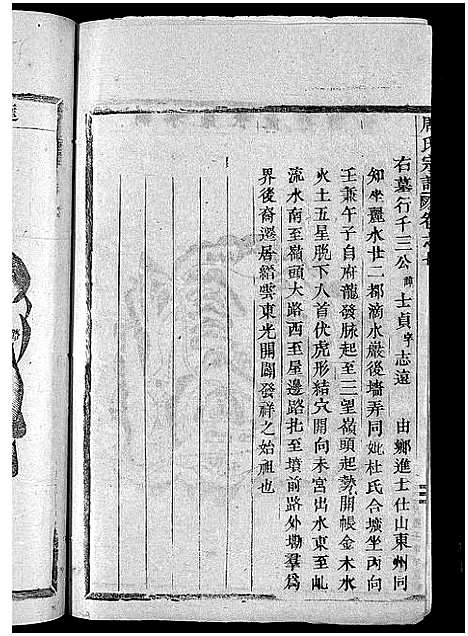 周氏宗譜
右墓行千三公諱士貞字志遠　由鄉進士仕山東州同
知坐麗水廿二都滴水巖後墻弄同妣杜氏合壙坐丙向
壬兼午子自府龍發脉起至三望嶺頭起勢開帳金木水
火土五星脫下人首伏虎形結穴開向未宮出水東至乢
流水南至嶺頭大路西至屋邊路北至墳前路外塝羣為
界後裔遷居縉雲東光開闢發祥之始祖也